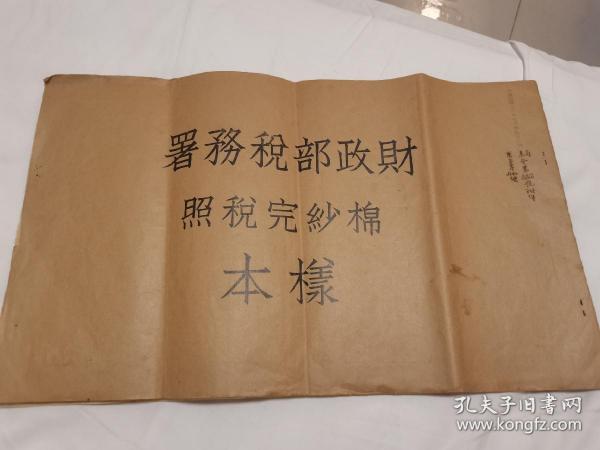 財政部稅務署
棉紗完稅照
樣本
孔夫子旧书网
www.kongfz.com